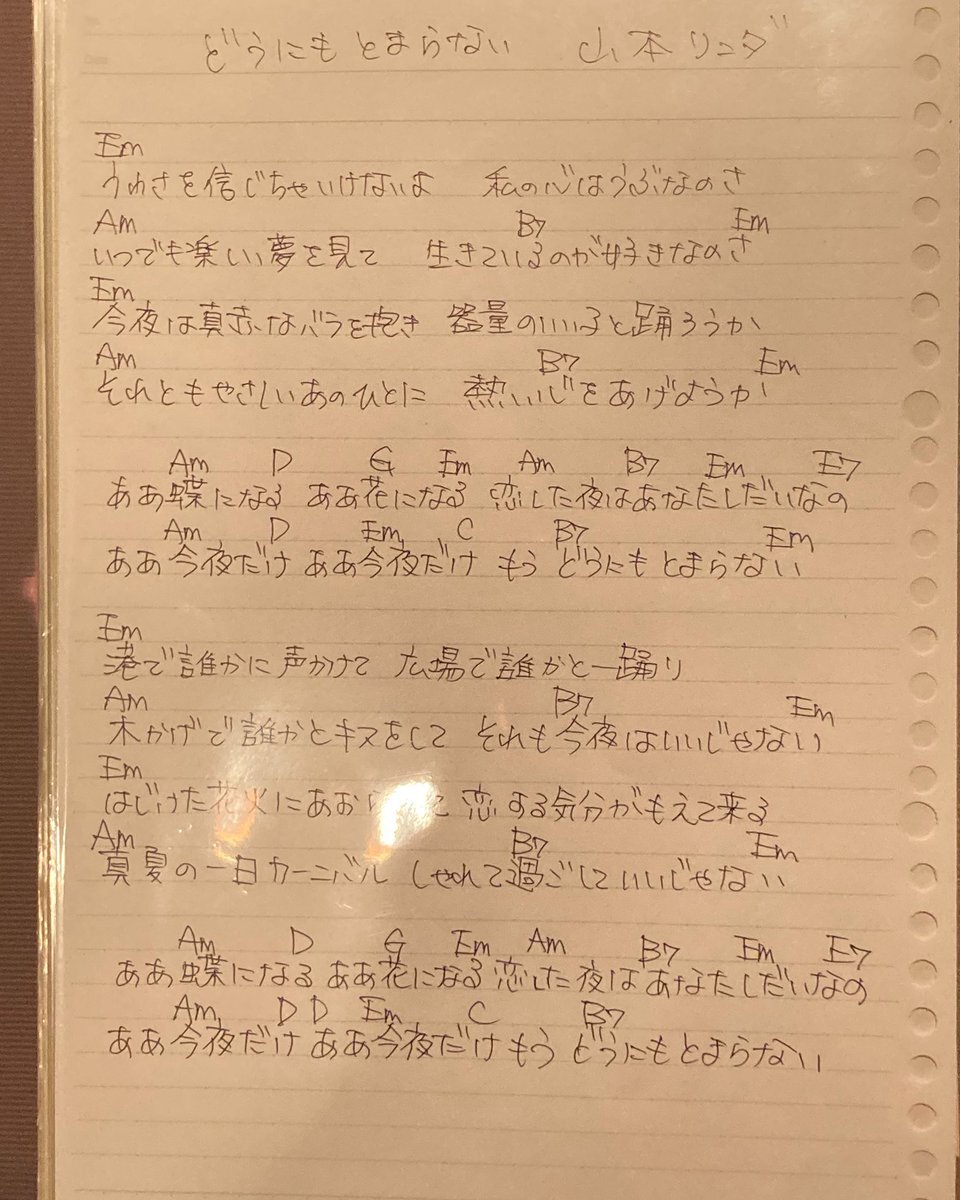 どうにもとまらない 山本リンダ
Em
うわさを信じちゃいけないよ 私の心はうぶなのさ
Am B7 Em
いつでも楽しい夢を見て 生きているのが好きなのさ
Em
今夜は真赤なバラを抱き 器量のいい子と踊ろうか
Am B7 Em
それともやさしいあのひとに 熱い心をあげようか
Am D G Em Am B7 Em E7
ああ蝶になる ああ花になる 恋した夜はあなたしだいなの
Am D Em C B7 Em
ああ今夜だけ ああ今夜だけ もう どうにもとまらない
Em
港で誰かに声かけて 広場で誰かと一踊り
Am B7 Em
木かげで誰かとキスをして それも今夜はいいじゃない
Em
はじけた花火にあお 恋する気分がもえて来る
Am B7 Em
真夏の一日カーニバル しゃれて過ごしていいじゃない
Am D G Em Am B7 Em E7
ああ蝶になる ああ花になる 恋した夜はあなたしだいなの
Am D D Em C B7
ああ今夜だけ ああ今夜だけ もう どうにもとまらない